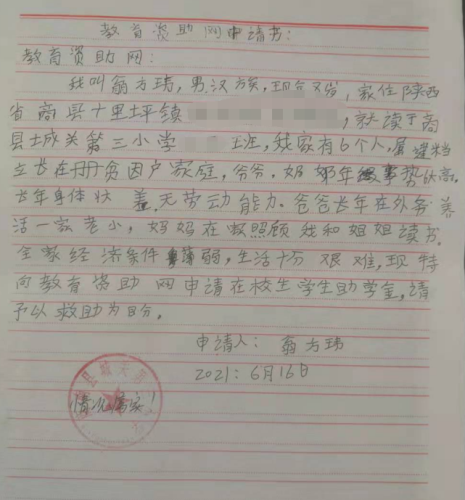 教育资助网申请书:
教育资助网:
我叫翁方玮,男,汉族,现,家住陕西
省商县十里坪镇,就读于商
县城关第三小学班,我家有6个人,属建档
立卡在册贫困户家庭,爷爷、奶奶年事高,
长年身体状差无劳动能力。爸爸长年在外务养
活一家老小,妈妈在家照顾我和姐姐读书。
全家经济条件薄弱,生活十分艰难,现特
向教育资助网申请在校生学生助学金,请
予以救助为盼。
申请人:翁方玮
2021:6月16日
情况属实!